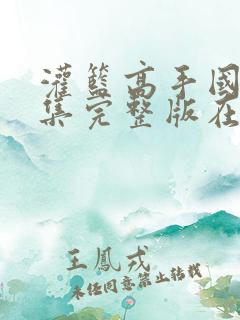 灌籃高手國
集完整版在
王鳳戎
未经同意禁止转载